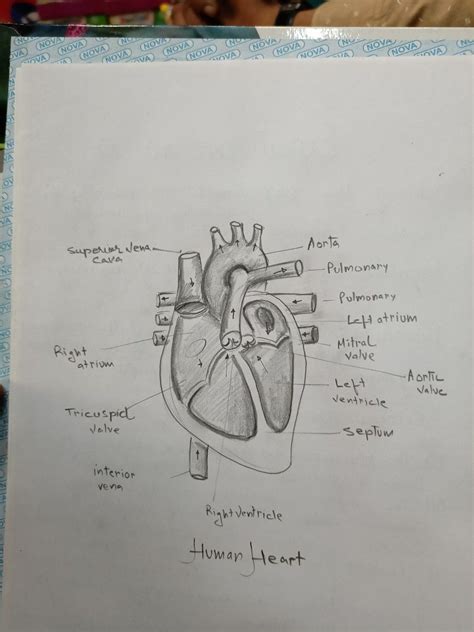 NOVA NOVA NOVA NOVA NOVA NOVA
Superior Vena
cava
Aorta
Pulmonary
Pulmonary
Left atrium
Mitral
valve
Right
atrium
Aortic
valve
Left
ventricle
Tricuspid
valve
Septum
interior
vena
Right Ventricle
Human Heart